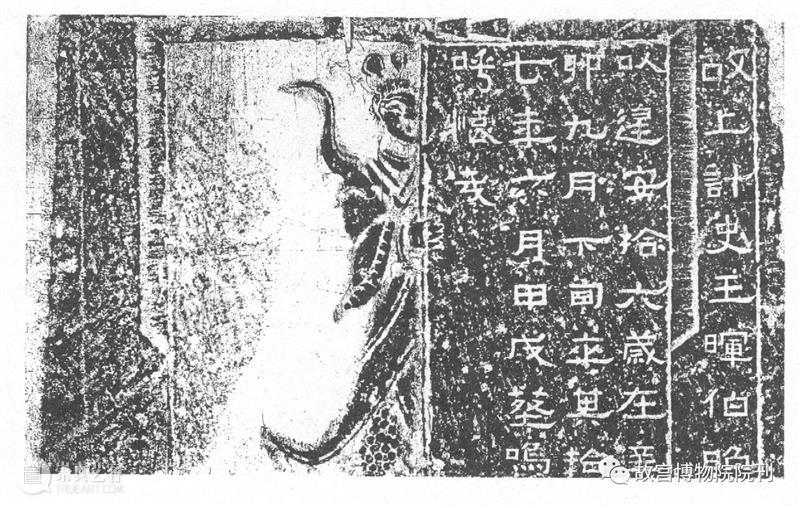 故上計史王暉伯昭
以建安拾六歲在辛
卯九月下旬卒其拾
七年六月甲戌葬嗚
呼哉
故宫博物院院刊
TRUEART.COM